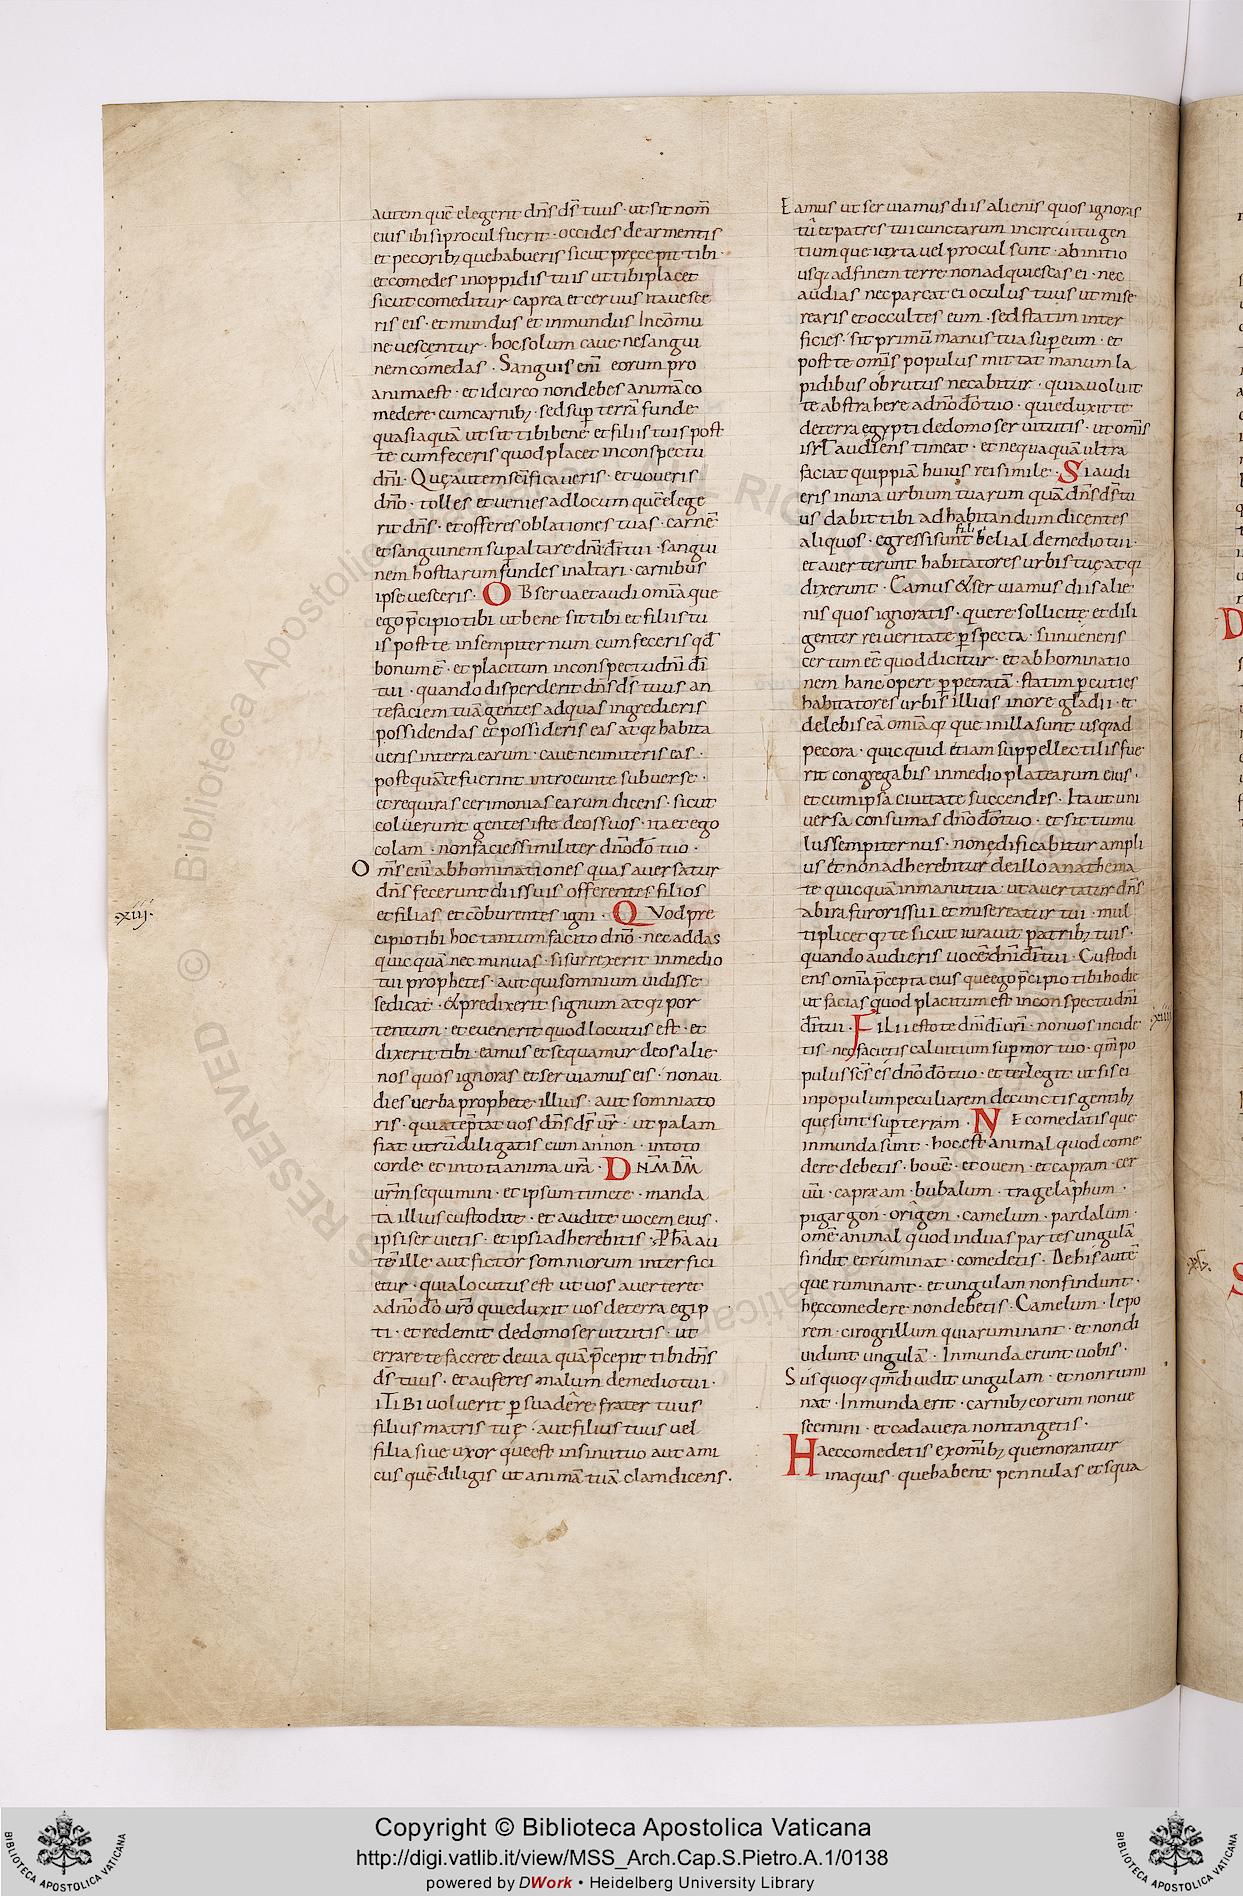 autem quē elegerit dn̄s ds̄ tuus · ut sit nom̄
eius ibi si procul fuerit · occides de armentis
et pecorib; que habueris sicut pręcepit tibi ·
et comedes in oppidis tuis ut tibi placet
sicut comeditur caprea et ceruus ita uesce
ris eis · et mundus et inmundus In cōmu
ne uescentur · hoc solum caue ne sangui
nem comedas · Sanguis eni eorum pro
anima est · et idcirco non debes animā co
medere cum carnib; sed sup terrā funde
quasi aquā ut sit tibi bene et filiis tuis post
te cum feceris quod placet in conspectu
dn̄i · Quę autem sc̄ificaueris · et uoueris
dn̄o · tolles et uenies ad locum quē elege
rit dn̄s · et offeres oblationes tuas · carnē
et sanguinem sup altare dn̄i dī tui · sangui
nem hostiarum fundes in altari · carnibus
ipse uesceris · OBserua et audi omīa que
ego p̄cipio tibi ut bene sit tibi et filiis tu
is post te in sempiternum cum feceris qd̄
bonum ē · et placitum in conspectu dn̄i dī
tui · quando disperderit dn̄s ds̄ tuus an
te faciem tuā gentes ad quas ingredieris
possidendas et possideris eas atq; habita
ueris in terra earum · caue ne imiteris eas ·
postquā te fuerint introeunte subuerse ·
et requiras cerimonias earum dicens · sicut
coluerunt gentes iste deos suos · ita et ego
colam · non facies similiter dn̄o dō tuo ·
Om̄s eni abhominationes quas auersatur
dn̄s fecerunt diis suis offerentes filios
et filias et cōburentes igni · QVod pre
xiii·
cipio tibi hoc tantum facito dn̄o · nec addas
quicquā nec minuas · si surrexerit in medio
tui prophetes · aut qui somnium uidisse
se dicat · & predixerit signum atq; por
tentum · et euenerit quod locutus est · et
dixerit tibi · eamus et sequamur deos alie
nos quos ignoras et seruiamus eis · non au
dies uerba prophete illius · aut somniato
ris · quia teptat uos dn̄s ds̄ ur̄ · ut palam
fiat utrū diligatis eum an non · in toto
corde et in tota anima urā · DN̄M DM̄
urm̄ sequimini · et ipsum timete · manda
ta illius custodite · et audite uocem eius ·
ipsi seruietis · et ipsi adherebitis · pha au
tē ille aut fictor somniorum interfici
etur · quia locutus est ut uos auerteret
a dn̄o dō uro qui eduxit uos de terra egip
ti · et redemit de domo seruitutis · ut
errare te faceret de uia quā p̄cepit tibi dn̄s
ds̄ tuus · et auferes malum de medio tui ·
iTiBi uoluerit psuadere frater tuus
filius matris tuę · aut filius tuus uel
filia siue uxor que est in sinu tuo aut ami
cus quē diligis ut animā tuā clam dicens ·
Eamus ut seruiamus diis alienis quos ignoras
tu et patres tui cunctarum in circuitu gen
tium que iuxta uel procul sunt · ab initio
usq; ad finem terre non adquiescas ei · nec
audias nec parcat ei oculus tuus ut mise
rearis et occultes eum · sed statim inter
ficies · sit primū manus tua sup eum · et
post te omis populus mittat manum la
pidibus obrutus necabitur · quia uoluit
te abstrahere a dn̄o dō tuo · qui eduxit te
de terra egypti de domo seruitutis · ut omis
isrl audiens timeat · et nequaquā ultra
faciat quippiā huius rei simile · Si audi
eris in una urbium tuarum quā dn̄s ds̄ tu
us dabit tibi ad habitandum dicentes
filii
aliquos · egressi sunt belial de medio tui ·
et auerterunt habitatores urbis tuę atq;
dixerunt · Eamus & seruiamus diis alie
nis quos ignoratis · quere sollicite et dili
genter rei ueritate pspecta · si inueneris
certum eē quod dicitur · et abhominatio
nem hanc opere ppetratā · statim pcuties
habitatores urbis illius in ore gladii · et
delebis eā omīaq; que in illa sunt usq; ad
pecora · quicquid etiam suppellectilis fue
rit congregabis in medio platearum eius ·
et cum ipsa ciuitate succendes · Ita ut uni
uersa consumas dn̄o dō tuo · et sit tumu
lus sempiternus · non edificabitur ampli
us et non adherebitur de illo anathema
te quicquā in manu tua · ut auertatur dn̄s
ab ira furoris sui et misereatur tui · mul
tiplicetq; te sicut iurauit patrib; tuis ·
quando audieris uocē dn̄i dī tui · Custodi
ens omīa p̄cepta eius que ego p̄cipio tibi hodie
ut facias quod placitum est in conspectu dn̄i
dī tui · FiLii estote dn̄i dī urī · non uos incide
xiiii
tis · neq; facietis caluitium sup mortuo · qm̄ po
pulus sc̄s es dn̄o dō tuo · et te elegit ut sis ei
in populum peculiarem de cunctis gentib;
quę sunt sup terram · NE comedatis que
inmunda sunt · hoc est animal quod come
dere debetis · bouē · et ouem · et capram · cer
uū · capræam · bubalum · tragelaphum ·
pigargon · origem · camelum · pardalum ·
omē animal quod in duas partes ungulā
findit et ruminat · comedetis · De his autē
que ruminant · et ungulam non findunt ·
hęc comedere non debetis · Camelum · lepo
rem · cirogrillum quia ruminant · et non di
uidunt ungulā · Inmunda erunt uobis ·
Sus quoq; qm̄ diuidit ungulam · et non rumi
nat · Inmunda erit · carnib; eorum non ue
scemini · et cadauera non tangetis ·
Haec comedetis ex omīb; que morantur
in aquis · que habent pennulas et squa
© Biblioteca Apostolica Vaticana
ALL RIGHTS RESERVED
Copyright © Biblioteca Apostolica Vaticana
http://digi.vatlib.it/view/MSS_Arch.Cap.S.Pietro.A.1/0138
powered by DWork • Heidelberg University Library
BIBLIOTECA APOSTOLICA VATICANA
BIBLIOTECA APOSTOLICA VATICANA